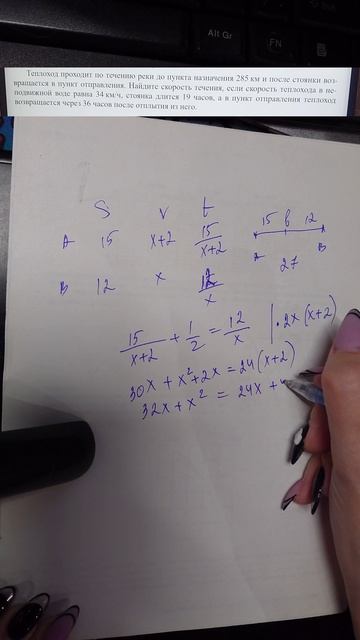 Alt Gr
FN
Теплоход проходит по течению реки до пункта назначения 285 км и после стоянки воз-
вращается в пункт отправления. Найдите скорость течения, если скорость теплохода в не-
подвижной воде равна 34 км/ч, стоянка длится 19 часов, а в пункт отправления теплоход
возвращается через 36 часов после отплытия из него.
S V t
A 15 x+2 15/(x+2)
B 12 x 12/x
15 б 12
A B
27
15/(x+2) + 1/2 = 12/x | · 2x(x+2)
30x + x² + 2x = 24(x+2)
32x + x² = 24x +